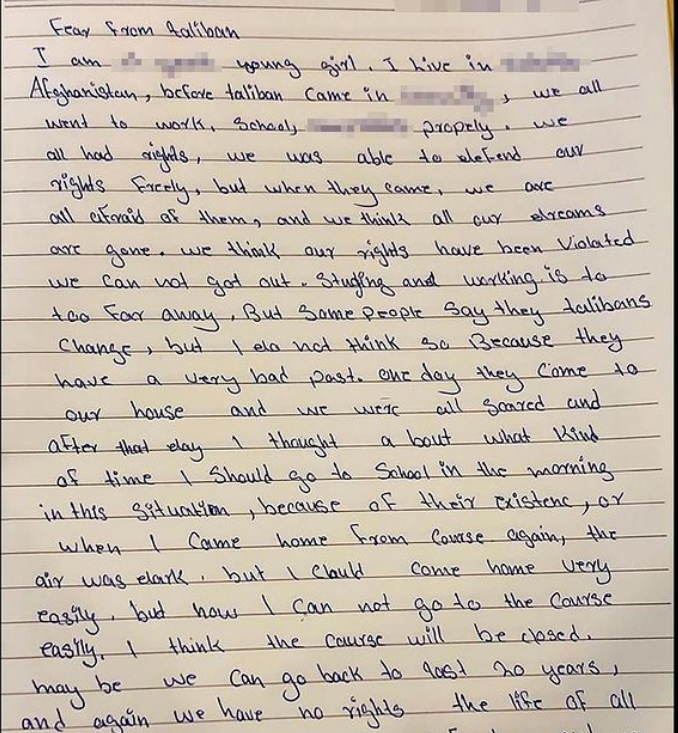 Fear from taliban
I am young girl. I live in
Afghanistan, before taliban came in , we all
went to work, School, propely. we
all had rights, we was able to defend our
rights freely, but when they came, we are
all afraid of them, and we think all our dreams
are gone. we think our rights have been violated
we can not got out. Studing and working is to
too far away, But Some people say they talibans
Change, but I do not think so Because they
have a very bad past. one day they come to
our house and we were all scared and
after that day I thought a bout what kind
of time I should go to School in the morning
in this situation, because of their existenc, or
when I came home from Course again, the
air was dark. but I Could come home very
easily, but now I can not go to the Course
easily. I think the Course will be closed.
may be we can go back to last 20 years,
and again we have no rights the life of all